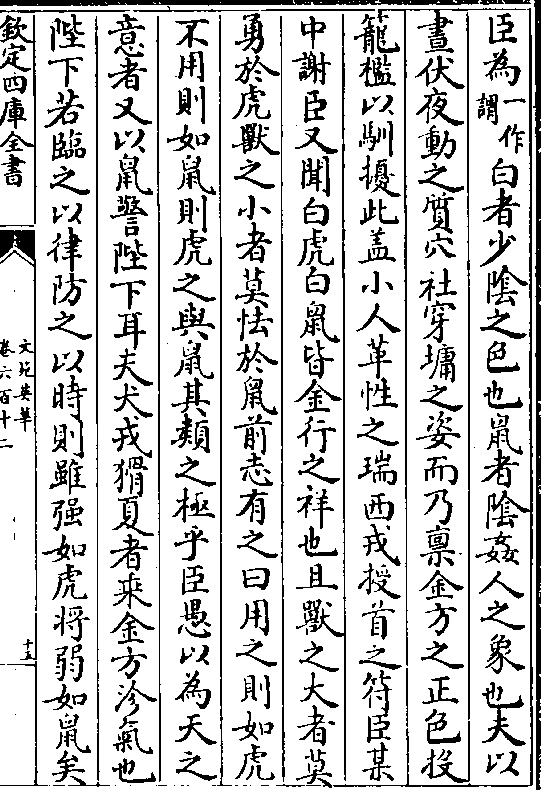 臣為一作謂白者少陰之色也鼠者陰姦人之象也夫以
晝伏夜動之質穴社穿墉之姿而乃禀金方之正色投
籠檻以馴擾此盖小人革性之瑞西戎授首之符臣某
中謝臣又聞白虎白鼠皆金行之祥也且獸之大者莫
勇於虎獸之小者莫怯於鼠前志有之曰用之則如虎
不用則如鼠則虎之與鼠其類之極乎臣愚以為天之
意者又以鼠警陛下耳夫犬戎猾夏者乘金方沴氣也
陛下若臨之以律防之以時則雖强如虎將弱如鼠矣
欽定四庫全書
文苑英華
卷六百十二
十五